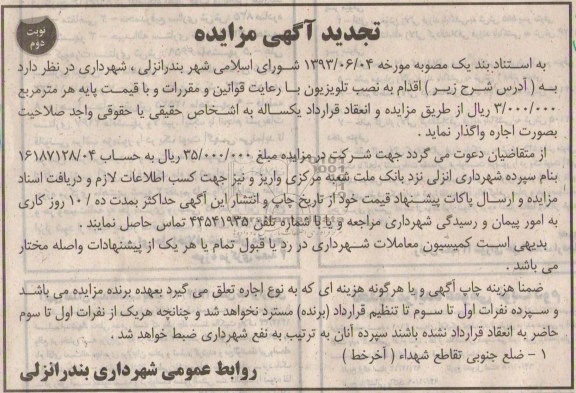 تجدید آگهی مزایده
نوبت دوم
به استناد بند یک مصوبه مورخه ۱۳۹۳/۰۶/۰۴ شورای اسلامی شهر بندرانزلی ، شهرداری در نظر دارد
به ( آدرس شرح زیر ) اقدام به نصب تلویزیون با رعایت قوانین و مقررات و با قیمت پایه هر مترمربع
۳/۰۰۰/۰۰۰ ریال از طریق مزایده و انعقاد قرارداد یکساله به اشخاص حقیقی یا حقوقی واجد صلاحیت
بصورت اجاره واگذار نماید .
از متقاضیان دعوت می گردد جهت شرکت در مزایده مبلغ ۳۵/۰۰۰/۰۰۰ ریال به حساب ۱۶۱۸۷۱۲۸/۰۴
بنام سپرده شهرداری انزلی نزد بانک ملت شعبه مرکزی واریز و نیز جهت کسب اطلاعات لازم و دریافت اسناد
مزایده و ارسال پاکات پیشنهاد قیمت خود از تاریخ چاپ و انتشار این آگهی حداکثر بمدت ده / ۱۰ روز کاری
به امور پیمان و رسیدگی شهرداری مراجعه و یا با شماره تلفن ۴۴۵۴۱۹۳۵ تماس حاصل نمایند .
بدیهی است کمیسیون معاملات شهرداری در رد یا قبول تمام یا هر یک از پیشنهادات واصله مختار
می باشد .
ضمنا هزینه چاپ آگهی و یا هرگونه هزینه ای که به نوع اجاره تعلق می گیرد بعهده برنده مزایده می باشد
و سپرده نفرات اول تا سوم تا تنظیم قرارداد (برنده) مسترد نخواهد شد و چنانچه هریک از نفرات اول تا سوم
حاضر به انعقاد قرارداد نشده باشند سپرده آنان به ترتیب به نفع شهرداری ضبط خواهد شد .
۱ - ضلع جنوبی تقاطع شهداء ( آخرخط )
روابط عمومی شهرداری بندرانزلی